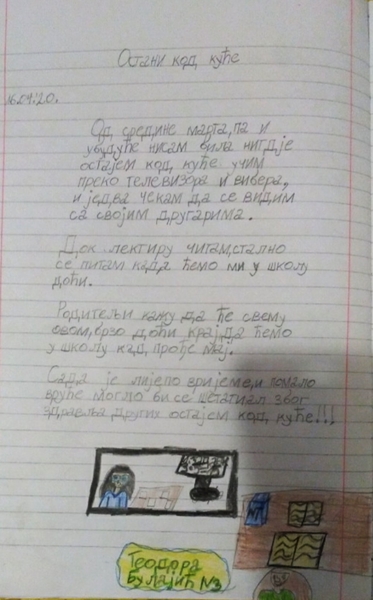 Остани код куће
16.04.20.
Од средине марта, па и
убудуће нисам била нигдје
остајем код куће учим
преко телевизора и вибера,
и једва чекам да се видим
са својим другарима.
Док лектиру читам, стално
се питам када ћемо ми у школу
доћи.
Родитељи кажу да ће свему
овом, брзо доћи крај да ћемо
у школу кад прође мај.
Сада је лијепо вријеме, и помало
вруће могло би се шетатиал због
здравља других остајем код куће!!!
Теодора
Булајић N3